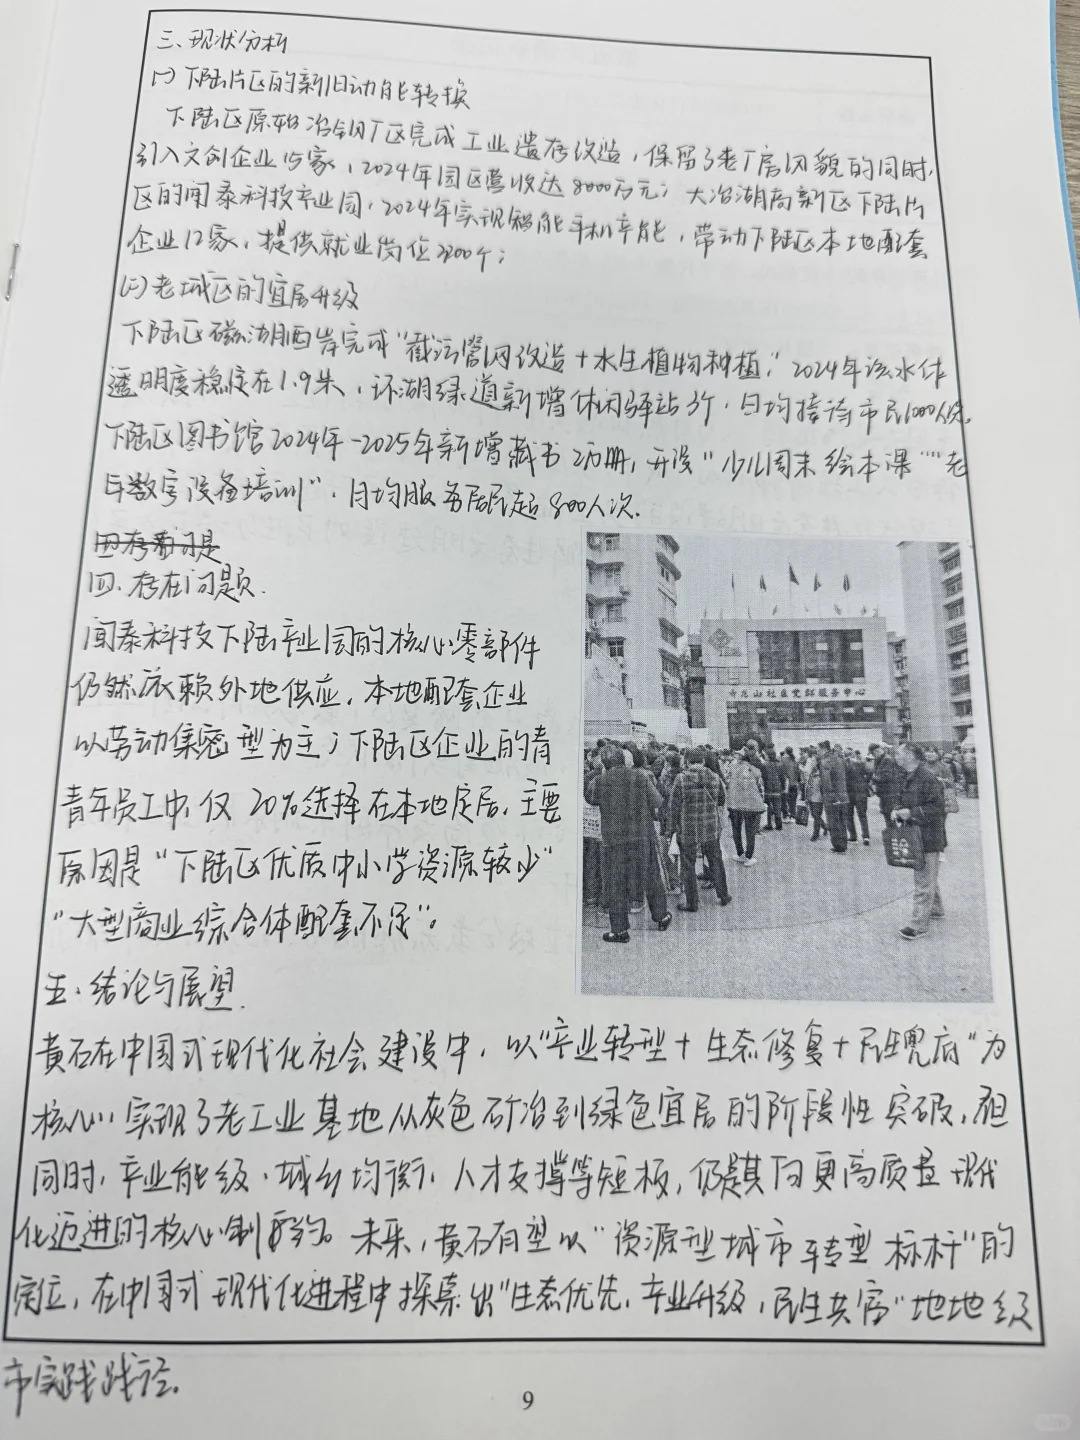 三、现状分析
(一) 下陆片区的新旧动能转换
下陆区原始冶钢厂区完成工业遗存改造，保留了老厂房风貌的同时，
引入文创企业15家，2024年园区营收达8000万元；大冶湖高新区下陆片
区的闻泰科技产业园，2024年实现智能手机产能，带动下陆区本地配套
企业12家，提供就业岗位2200个；
(二) 老城区的宜居升级
下陆区磁湖西岸完成“截污管网改造+水生植物种植”，2024年该水体
透明度稳定在1.9米，环湖绿道新增休闲驿站3个，日均接待市民1000人次。
下陆区图书馆2024年-2025年新增藏书2万册，开设“少儿周末绘本课”“老
年数字设备培训”，月均服务居民超800人次.
四存在问题
四.存在问题.
闻泰科技下陆产业园的核心零部件
仍然依赖外地供应，本地配套企业
以劳动集密型为主；下陆区企业的青
青年员工中，仅20%选择在本地定居，主要
原因是“下陆区优质中小学资源较少”
“大型商业综合体配套不足”。
五、结论与展望.
黄石在中国式现代化社会建设中，以“产业转型+生态修复+民生兜底”为
核心，实现了老工业基地从灰色矿冶到绿色宜居的阶段性突破，但
同时，产业能级、城乡均衡、人才支撑等短板，仍是其向更高质量现代
化迈进的核心制约。未来，黄石有望以“资源型城市转型标杆”的
定位，在中国式现代化进程中探索出“生态优先，产业升级，民生共富”地地级
市实践践径.
社区党群服务中心
9